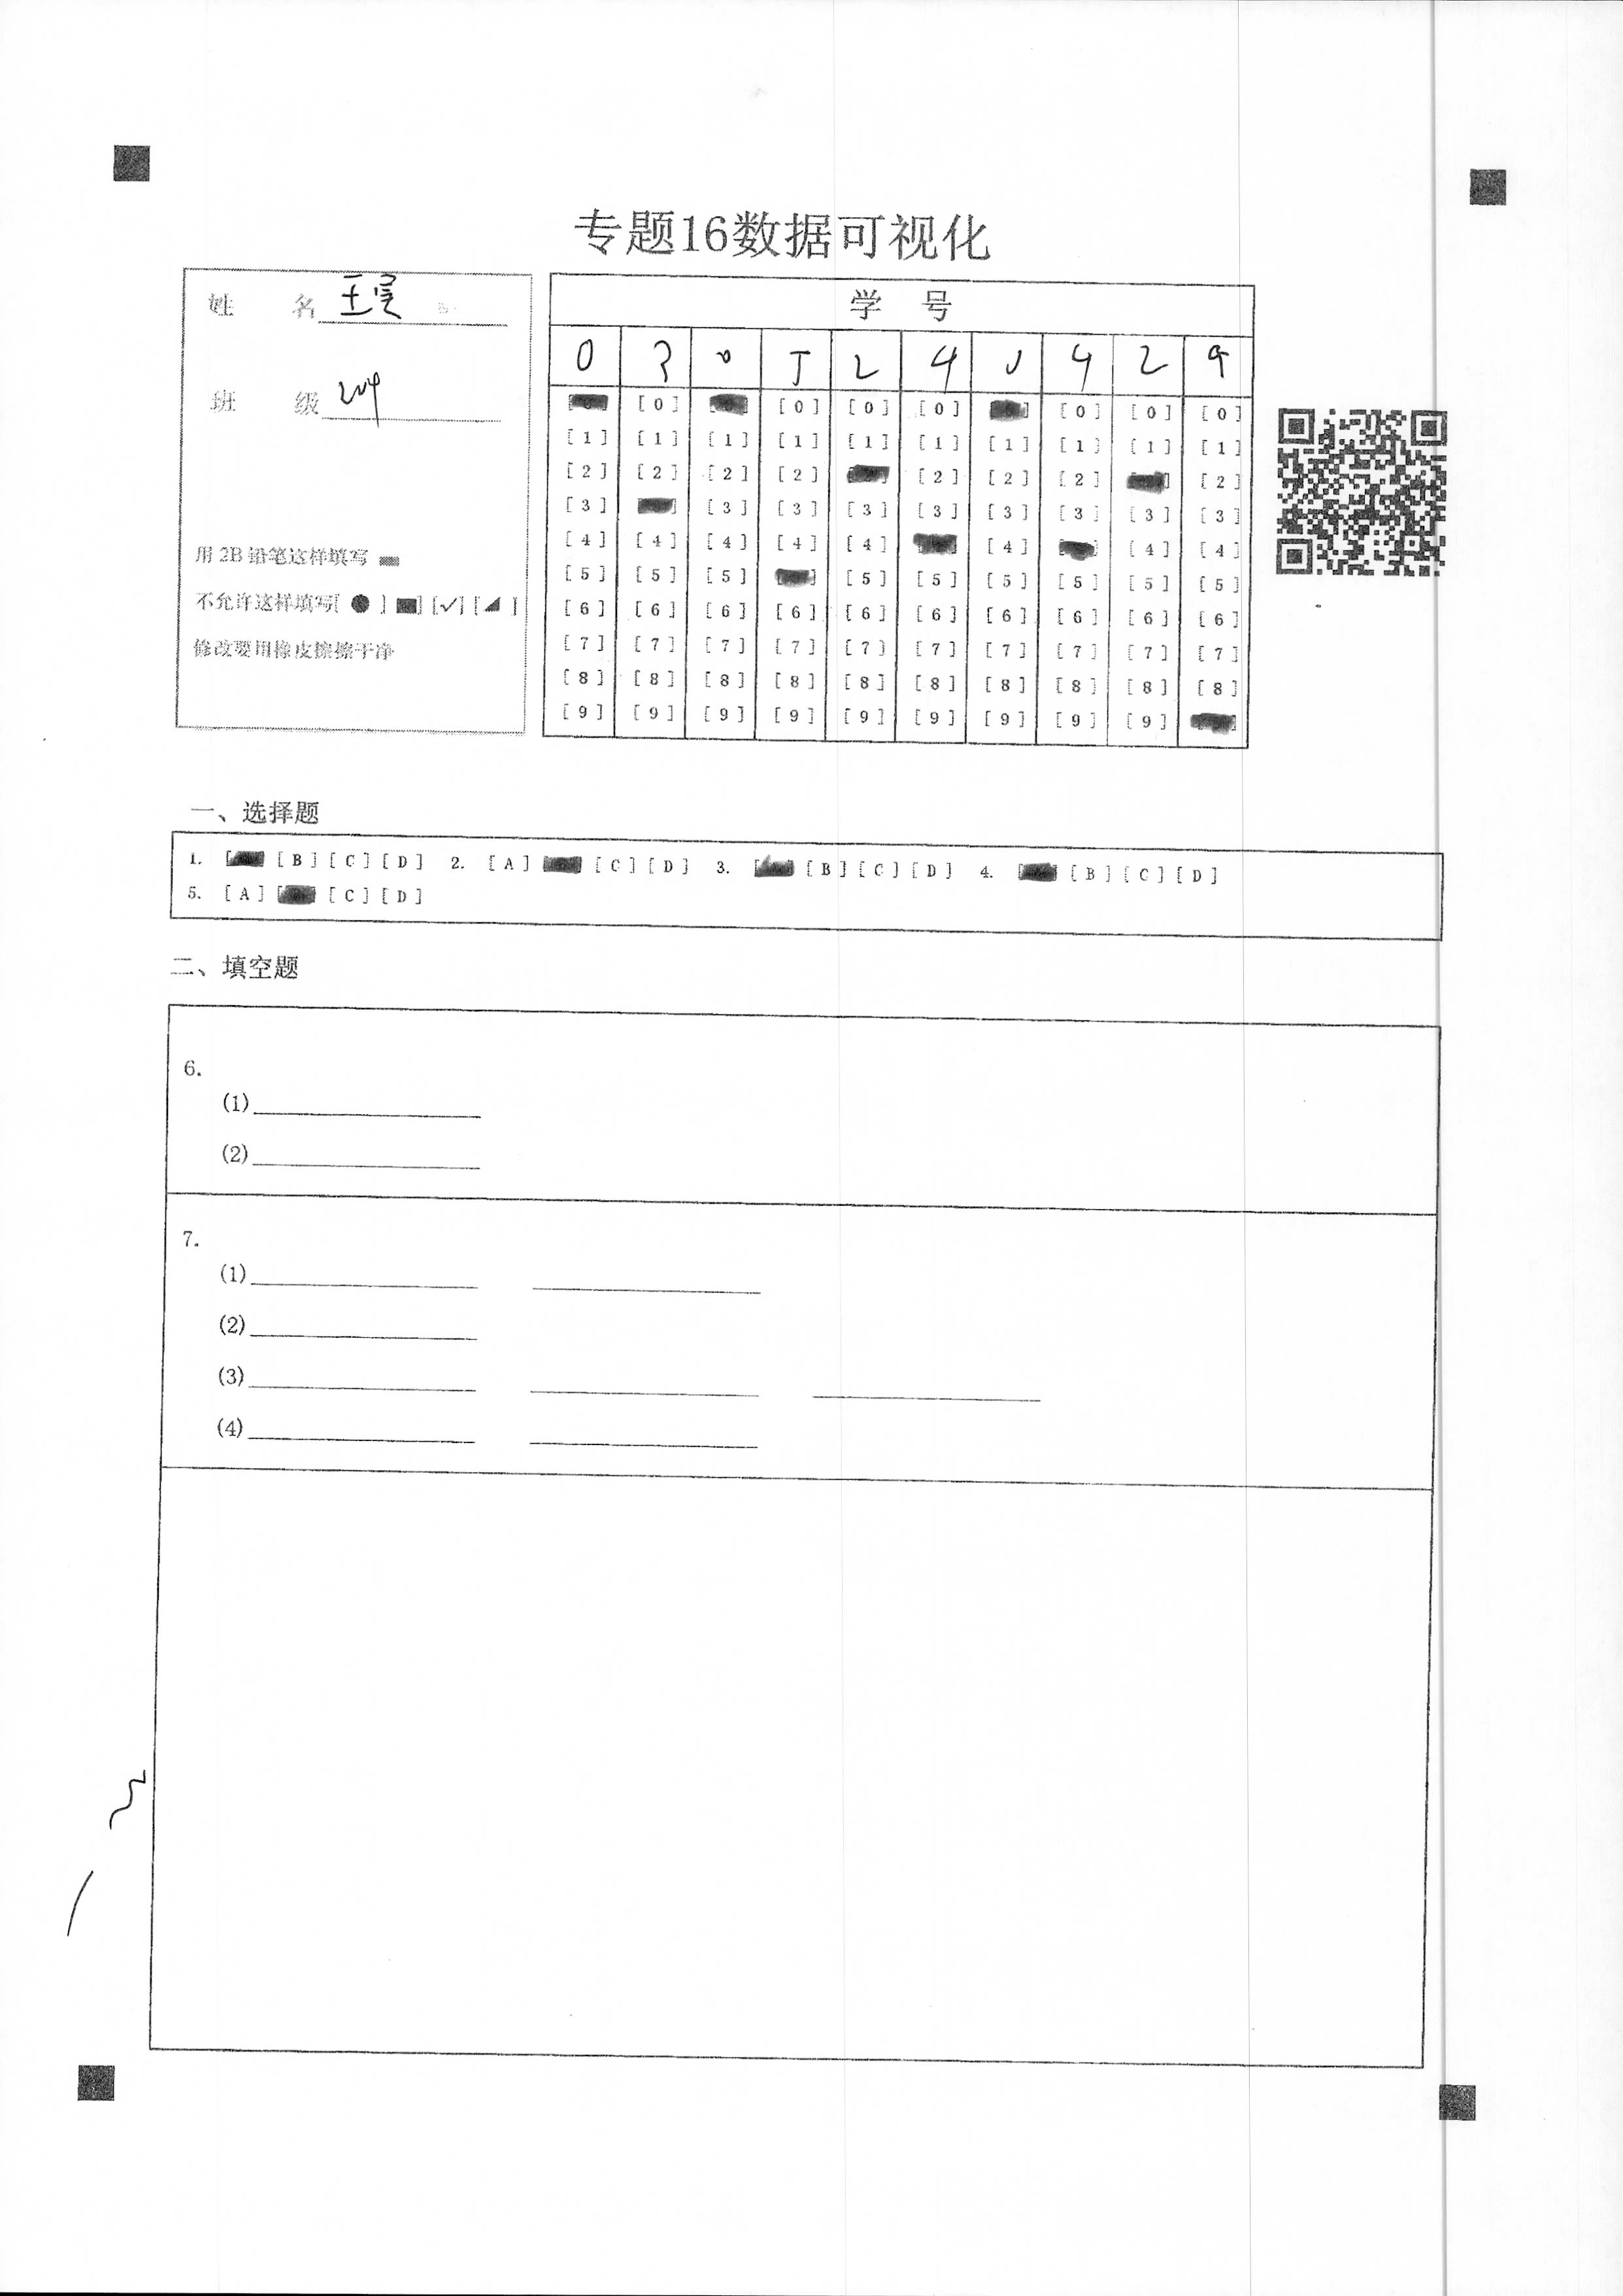 专题16数据可视化
姓 名 王昊
班 级 204
用 2B 铅笔这样填写
不允许这样填写[ ● ] ■] [✓] [◢ ]
修改要用橡皮擦擦干净
学 号
0 3 0 5 2 4 0 4 2 9
[0] [0] [0] [0] [0] [0] [0]
[1] [1] [1] [1] [1] [1] [1] [1] [1] [1]
[2] [2] [2] [2] [2] [2] [2] [2]
[3] [3] [3] [3] [3] [3] [3] [3] [3]
[4] [4] [4] [4] [4] [4] [4] [4]
[5] [5] [5] [5] [5] [5] [5] [5] [5]
[6] [6] [6] [6] [6] [6] [6] [6] [6] [6]
[7] [7] [7] [7] [7] [7] [7] [7] [7] [7]
[8] [8] [8] [8] [8] [8] [8] [8] [8] [8]
[9] [9] [9] [9] [9] [9] [9] [9] [9]
一、选择题
1. [B] [C] [D] 2. [A] [C] [D] 3. [B] [C] [D] 4. [B] [C] [D]
5. [A] [C] [D]
二、填空题
6.
(1)
(2)
7.
(1)
(2)
(3)
(4)